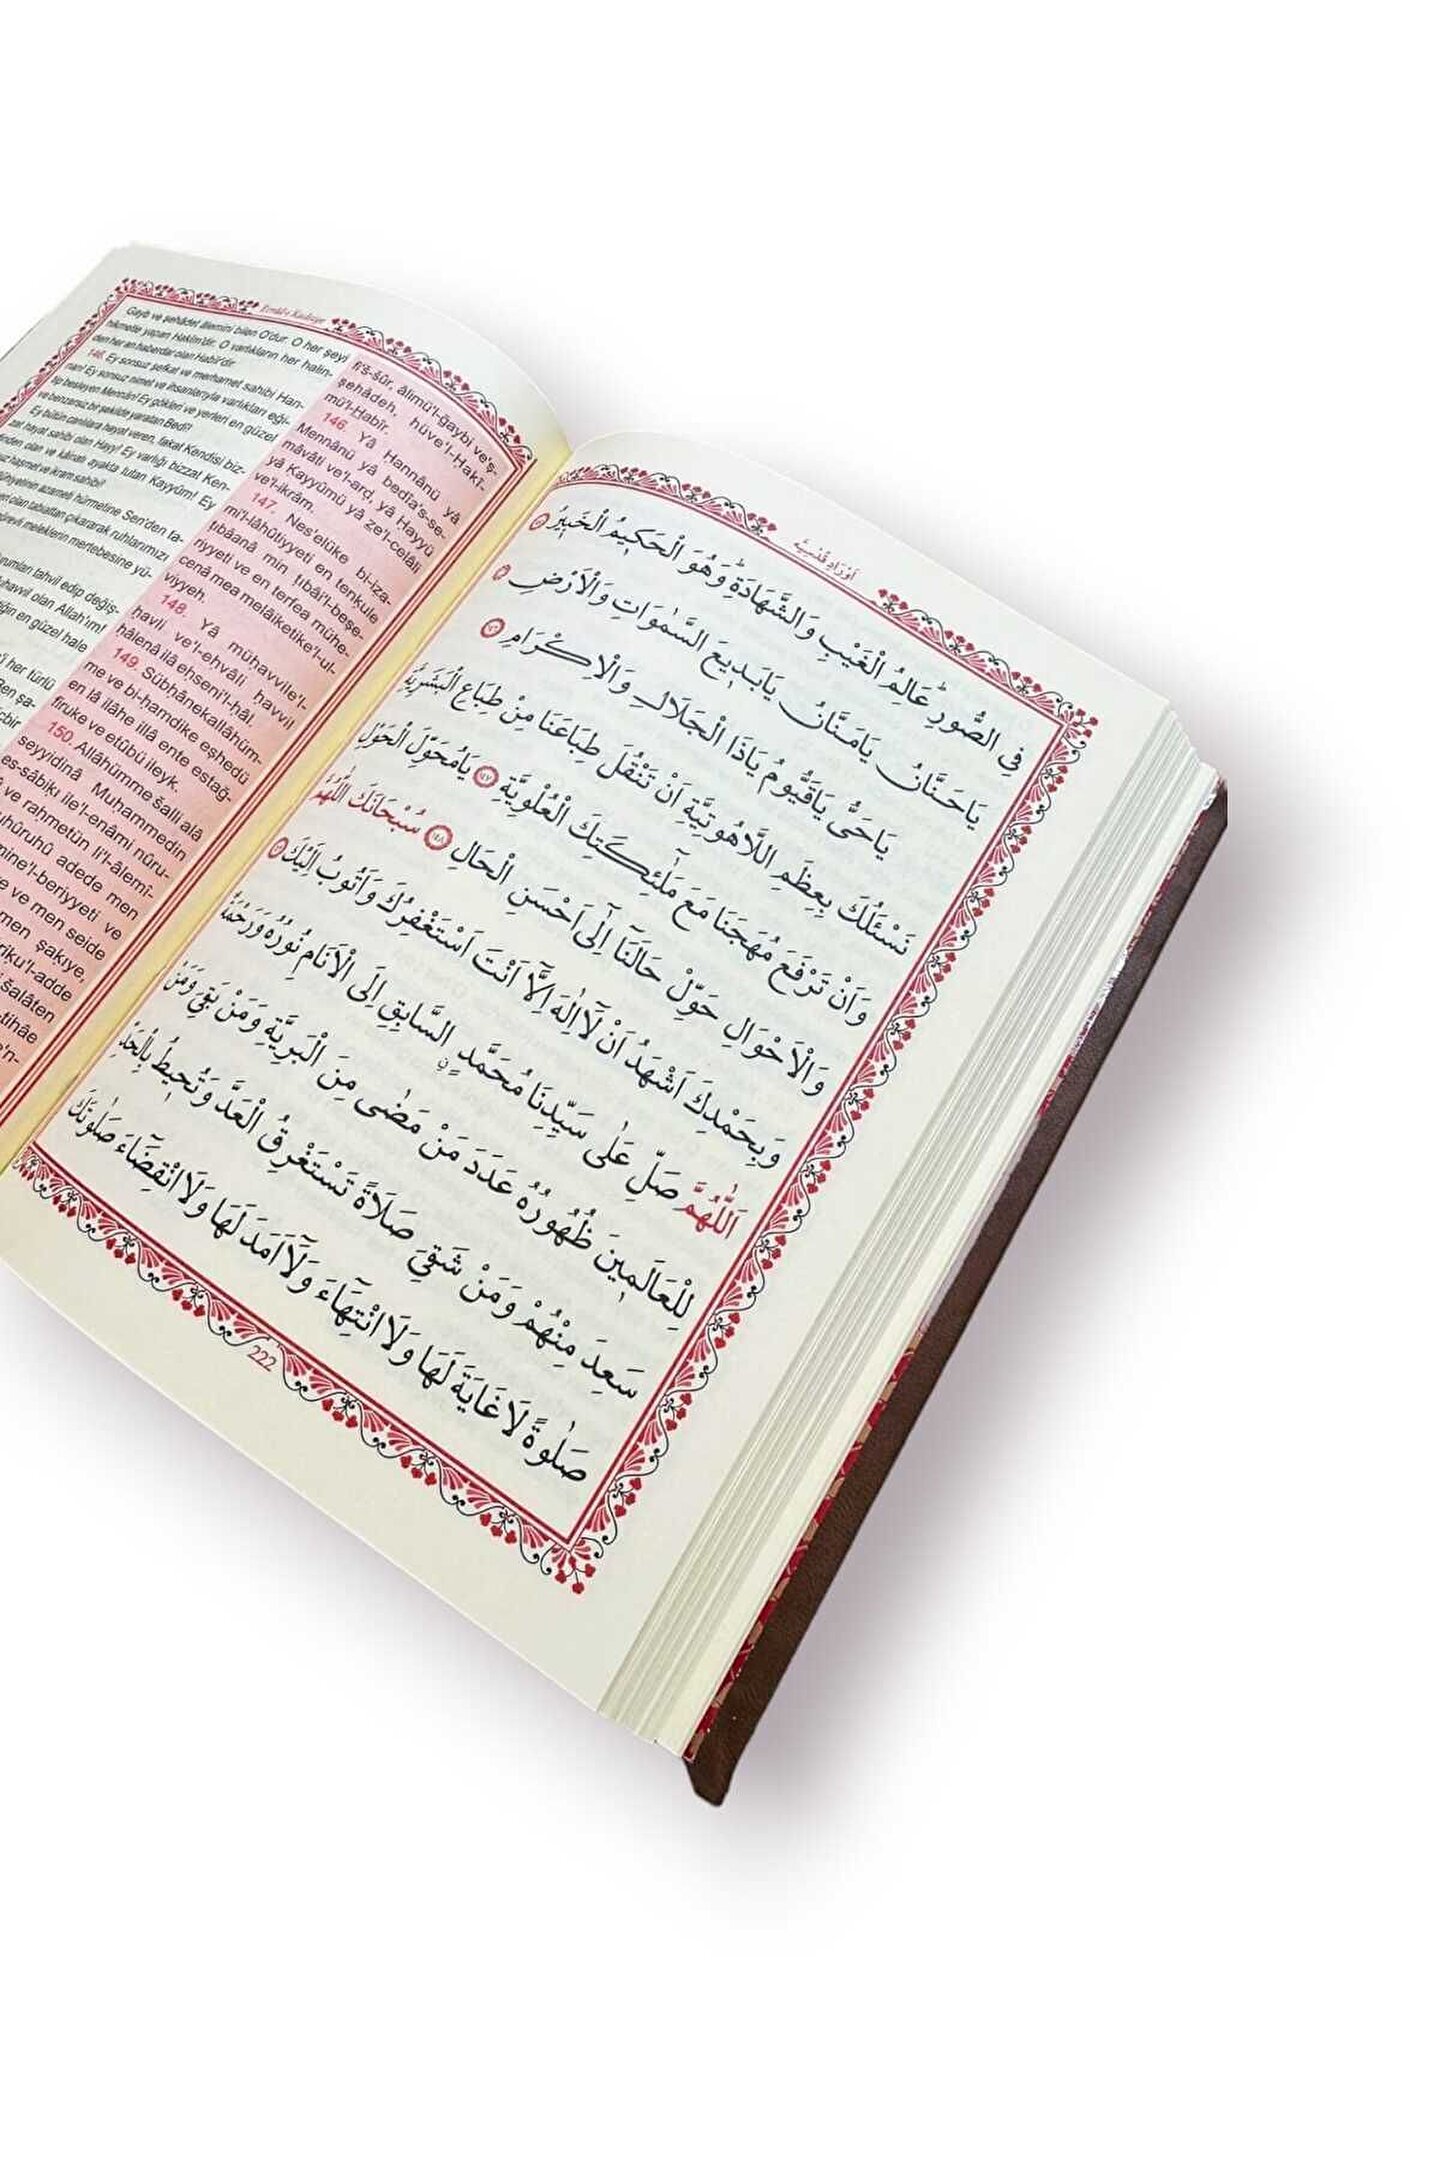 Evrâd-ı Kudsiyye
Gayb ve şehâdet âlemini bilen O'dur. O her şeyi
hikmetle yapan Hakîm'dir. O varlıkların her halin-
den her an haberdar olan Habîr'dir.
146. Ey sonsuz şefkat ve merhamet sahibi Han-
nan! Ey sonsuz nimet ve ihsanlarıyla varlıkları eği-
tip besleyen Mennân! Ey gökleri ve yerleri en güzel
ve benzersiz bir şekilde yaratan Bedî!
Ey bütün canlılara hayat veren, fakat Kendisi biz-
zat hayat sahibi olan Hayy! Ey varlığı bizzat Ken-
dinden olan ve kâinatı ayakta tutan Kayyûm! Ey
haşmet ve ikram sahibi!
azameti hürmetine Sen'den ta-
olan tabiatları çıkararak ruhlarımızı
meleklerin mertebesine yü-
tahvil edip değiş-
olan Allah'ım!
en güzel hale
her türlü
fi's-sûr, âlimü'l-ğaybi ve'ş-
şehâdeh, hüve'l-Hakî-
mü'l-Habîr.
146. Yâ Hannânü yâ
Mennânü yâ bedîa's-se-
mâvâti ve'l-ard, yâ Hayyü
yâ Kayyûmü yâ ze'l-celâli
ve'l-ikrâm.
147. Nes'elüke bi-iza-
mi'l-lâhûtiyyeti en tenkule
tıbâanâ min tıbâi'l-beşe-
riyyeti ve en terfea mühe-
cenâ mea melâiketike'l-ul-
viyyeh.
148. Yâ mühavvile'l-
havli ve'l-ehvâli havvil
hâlenâ ilâ ehseni'l-hâl.
149. Sübhânekallâhüm-
me ve bi-hamdike eşhedü
en lâ ilâhe illâ ente estağ-
firuke ve etûbü ileyk.
150. Allâhümme salli alâ
seyyidinâ Muhammedin
es-sâbikı ile'l-enâmi nûru-
ve rahmetün li'l-âlemî-
zuhûruhû adede men
mine'l-beriyyeti ve
ve men seide
men şakıye,
salâten
اَوْرَادِ قُدْسِيَّه
فِي الصُّورِ عَالِمُ الْغَيْبِ وَالشَّهَادَةِ وَهُوَ الْحَكِيمُ الْخَبِيرُ
يَاحَنَّانُ يَامَنَّانُ يَابَدِيعَ السَّمٰوَاتِ وَالْاَرْضِ
يَاحَىُّ يَاقَيُّومُ يَاذَا الْجَلَالِ وَالْاِكْرَامِ ١٤٦
نَسْئَلُكَ بِعِظَمِ اللَّاهُوتِيَّةِ اَنْ تَنْقُلَ طِبَاعَنَا مِنْ طِبَاعِ الْبَشَرِيَّةِ
وَاَنْ تَرْفَعَ مُهَجَنَا مَعَ مَلٰٓئِكَتِكَ الْعُلْوِيَّةِ ١٤٧ يَامُحَوِّلَ الْحَوْلِ
وَالْاَحْوَالِ حَوِّلْ حَالَنَٓا اِلٰٓى اَحْسَنِ الْحَالِ ١٤٨ سُبْحَانَكَ اللّٰهُمَّ
وَبِحَمْدِكَ اَشْهَدُ اَنْ لَٓا اِلٰهَ اِلَّٓا اَنْتَ اَسْتَغْفِرُكَ وَاَتُوبُ اِلَيْكَ
اَللّٰهُمَّ صَلِّ عَلٰى سَيِّدِنَا مُحَمَّدٍ السَّابِقِ اِلَى الْاَنَامِ نُورُهُ وَرَحْمَةٌ
لِلْعَالَمِينَ ظُهُورُهُ عَدَدَ مَنْ مَضٰى مِنَ الْبَرِيَّةِ وَمَنْ بَقِيَ وَمَنْ
سَعِدَ مِنْهُمْ وَمَنْ شَقِيَ صَلَاةً تَسْتَغْرِقُ الْعَدَّ وَتُحِيطُ بِالْحَدِّ
صَلٰوةً لَا غَايَةَ لَهَا وَلَا انْتِهَٓاءَ وَلَٓا اَمَدَ لَهَا وَلَا انْقِضَٓاءَ صَلٰوتَكَ
222